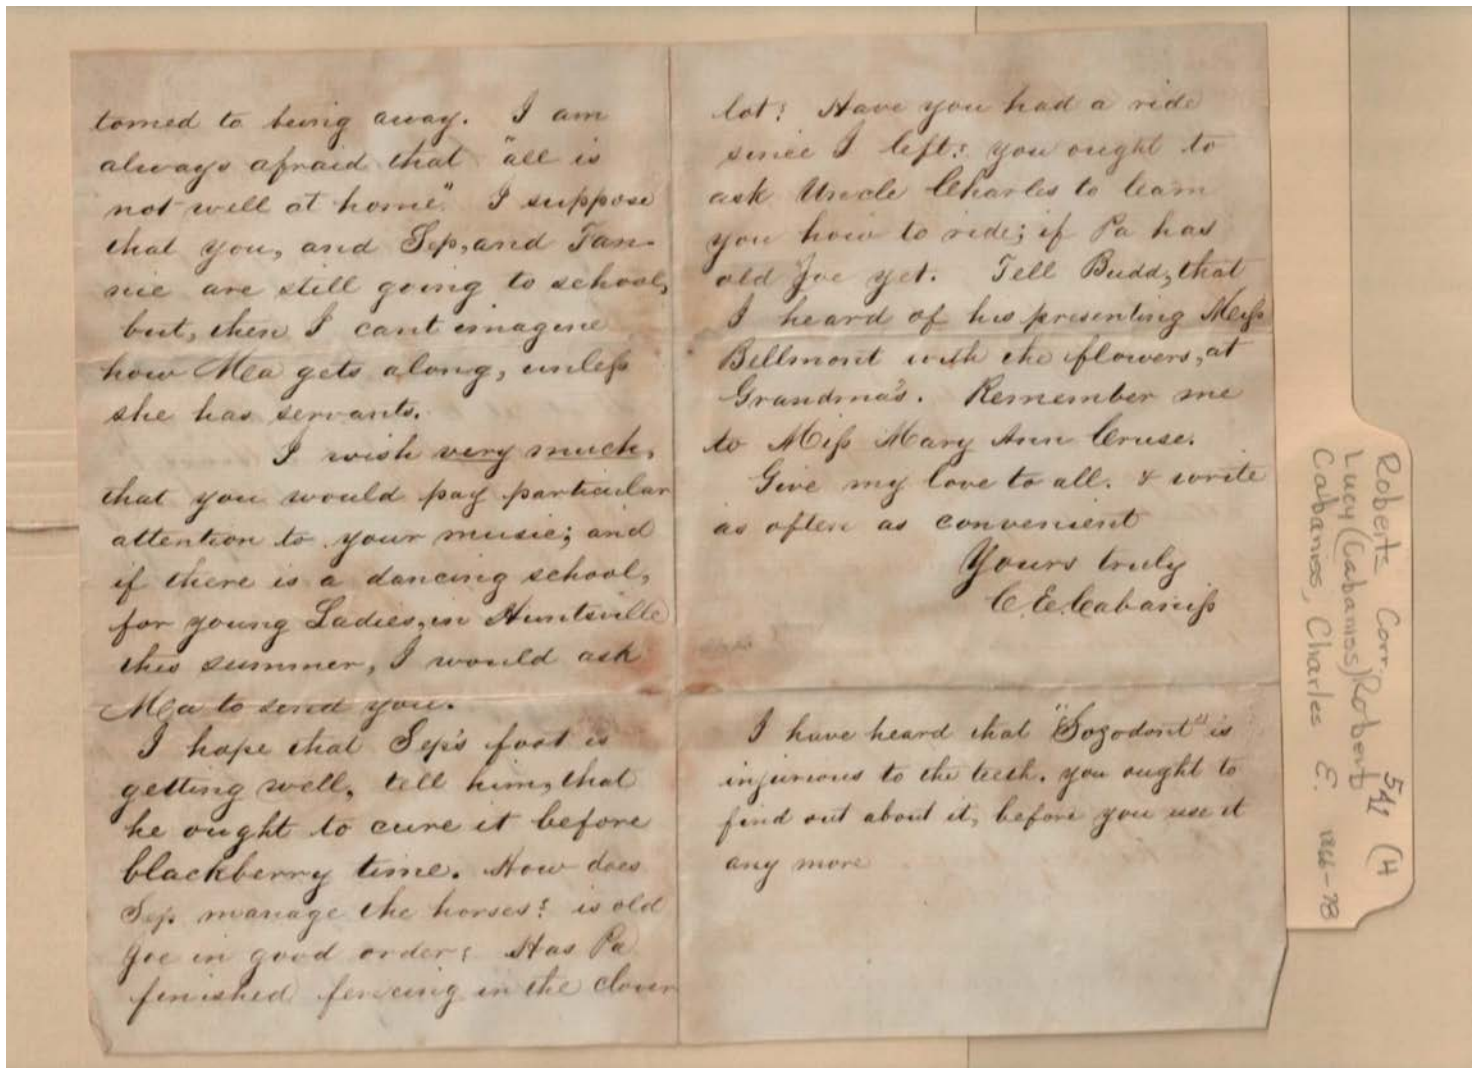 tomed to being away. I am
always afraid that "all is
not well at home" I suppose
that you, and Sep, and Fan-
nie are still going to school,
but, then I cant imagine
how Ma gets along, unless
she has servants.
I wish very much,
that you would pay particular
attention to your music; and
if there is a dancing school,
for young Ladies, in Huntsville
this summer, I would ask
Ma to send you.
I hope that Sep's foot is
getting well, tell him, that
he ought to cure it before
blackberry time. How does
Sep. manage the horses? is old
Joe in good order? Has Pa
finished fencing in the clover
lot? Have you had a ride
since I left? you ought to
ask Uncle Charles to learn
you how to ride; if Pa has
old Joe yet. Tell Budd, that
I heard of his presenting Miss
Bellmont with the flowers, at
Grandma's. Remember me
to Miss Mary Ann Cruse.
Give my love to all. & write
as often as convenient
Yours truly
C. E. Cabaniss
I have heard that "Sozodont" is
injurious to the teeth. you ought to
find out about it, before you use it
any more
Roberts Corr. 541 (4
Lucy (Cabaniss) Robert
Cabaniss, Charles E. 1866-78